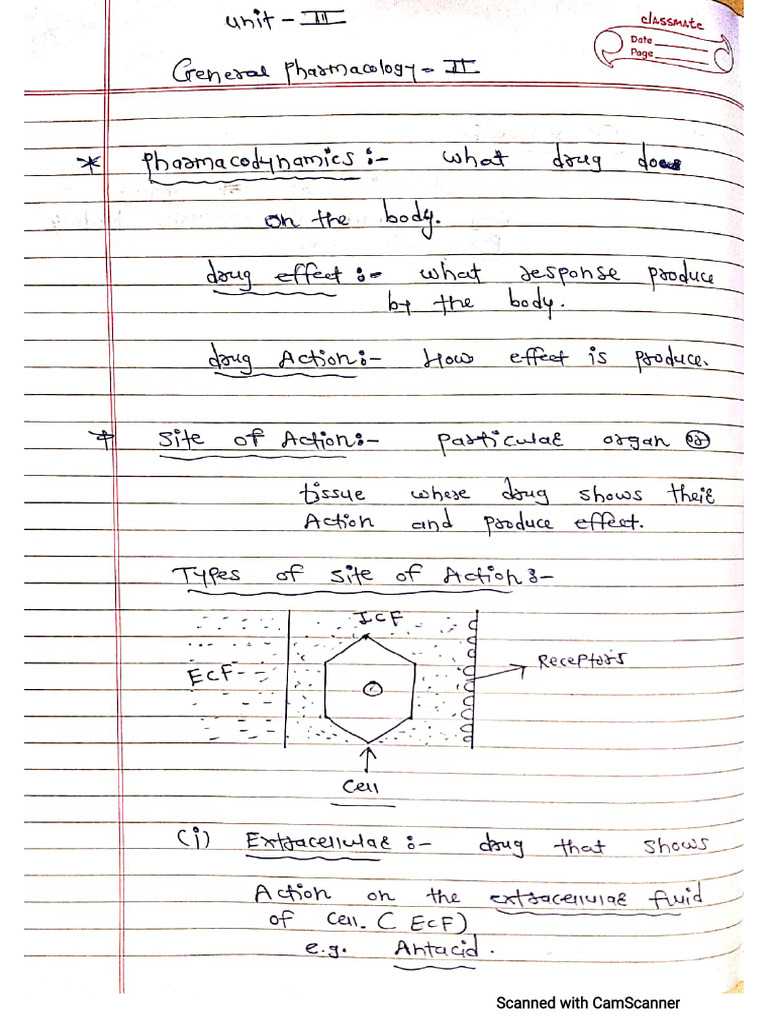 Unit - III
classmate
Date
Page
General Pharmacology - II
* Pharmacodynamics :- what drug does
on the body.
drug effect :- what response produce
by the body.
drug Action :- How effect is produce.
* Site of Action :- Particular organ or
tissue where drug shows their
Action and produce effect.
Types of site of Action :-
ICF
ECF
Receptors
Cell
(i) Extracellular :- drug that shows
Action on the extracellular fluid
of cell. (ECF)
e.g. Antacid.
Scanned with CamScanner